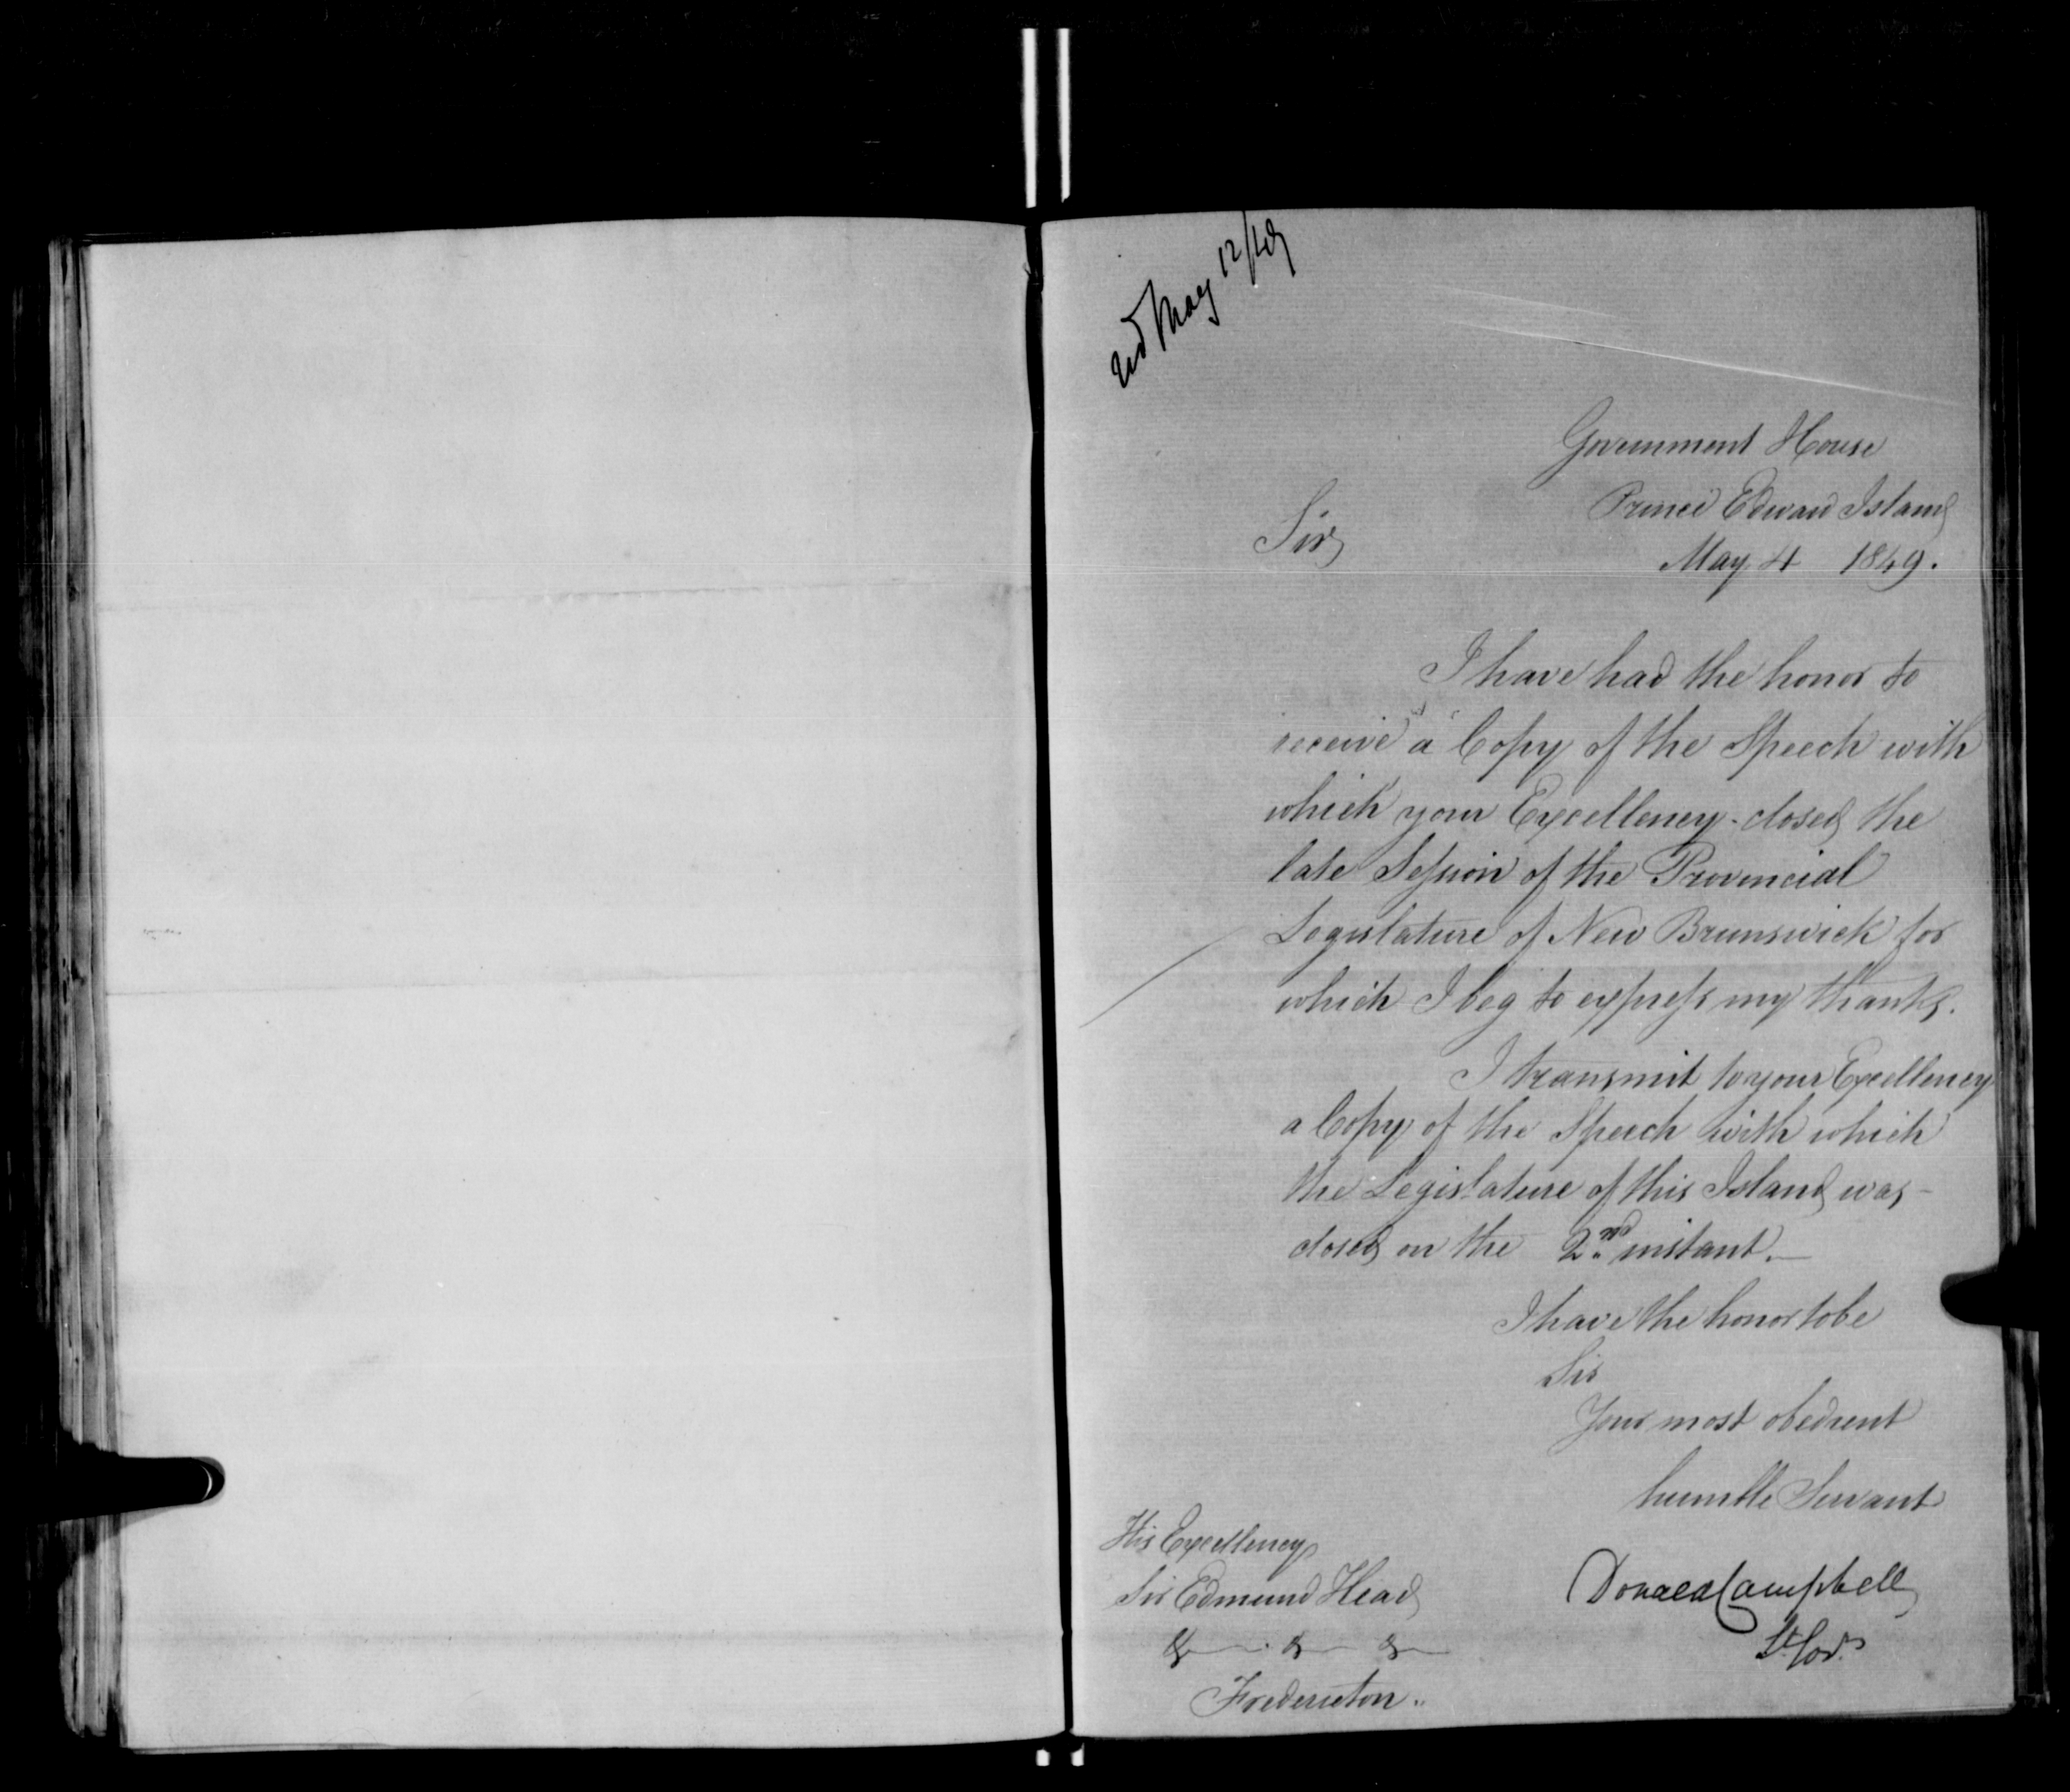 Recd May 12/49
Government House
Prince Edward Island
May 4 1849.
Sir,
I have had the honor to
receive a Copy of the Speech with
which your Excellency closed the
late Session of the Provincial
Legislature of New Brunswick for
which I beg to express my thanks.
I transmit to your Excellency
a Copy of the Speech with which
the Legislature of this Island was
closed on the 2nd instant.
I have the honor to be
Sir
Your most obedient
humble Servant
Donald Campbell
Lt Govr
His Excellency
Sir Edmund Head
& & &
Fredericton.